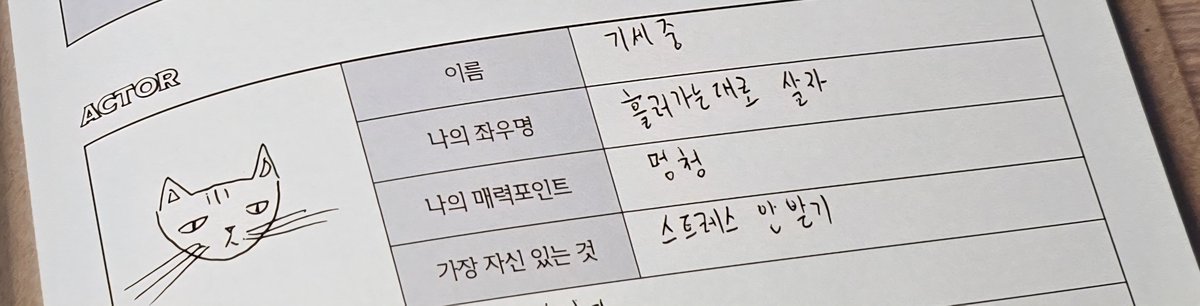 ACTOR
이름 기세중
나의 좌우명 흘러가는대로 살자
나의 매력포인트 멍청
가장 자신 있는 것 스트레스 안 받기